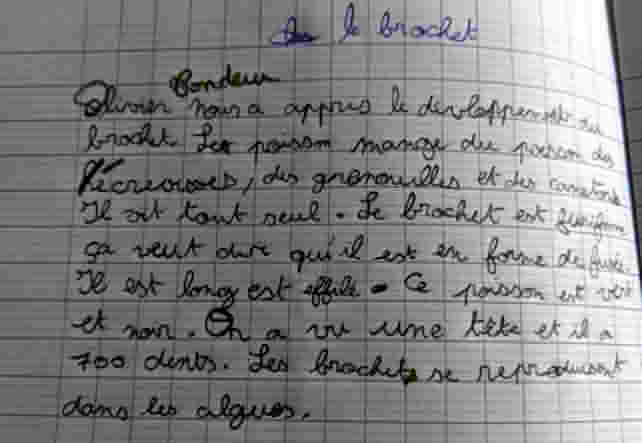 le brochet
Bondeux
Olivier nous a appris le devloppement du
brochet. Le poisson mange du poisson des
écrevisses, des grenouilles et des canetons
Il vit tout seul. Le brochet est fusiforme
ça veut dire qu'il est en forme de fusée.
Il est long est effilé. Ce poisson est vert
et noir. On a vu une tête et il a
700 dents. Les brochets se reproduisent
dans les algues.